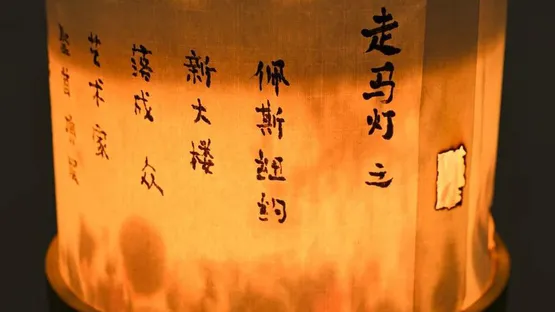 走马灯之
佩斯纽约
新大楼
落成 众
艺术家